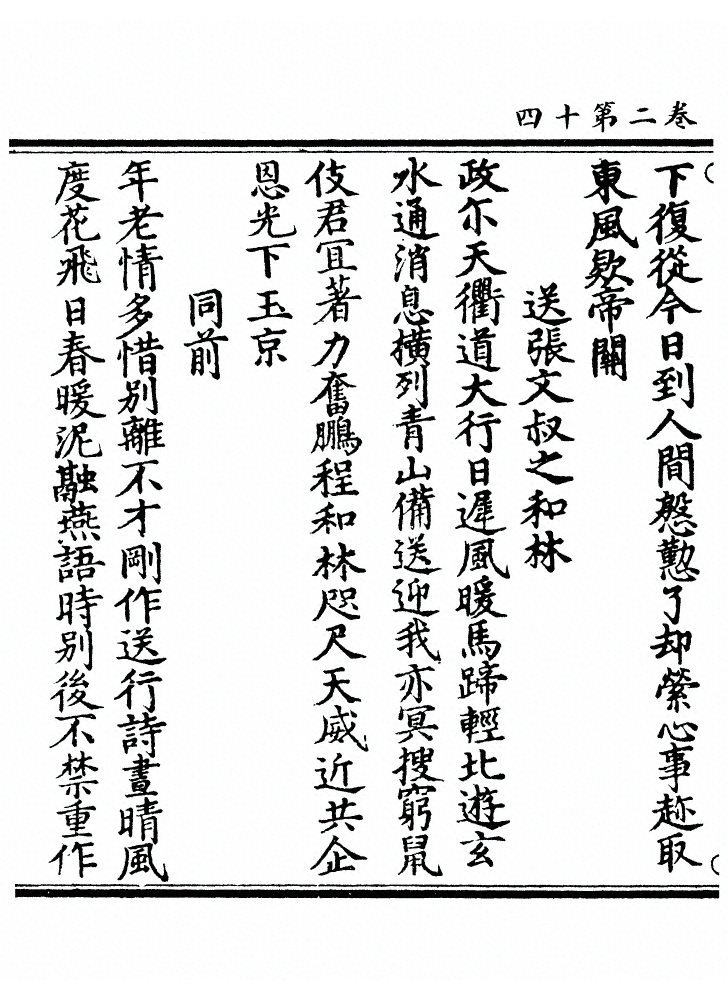 卷二第十四
下復從今日到人間慇懃了却縈心事趂取
東風欵帝關
送張文叔之和林
政尒天衢道大行日遲風暖馬蹄輕北遊玄
水通消息橫列青山備送迎我亦冥搜窮鼠
伎君冝著力奮鵬程和林咫尺天威近共企
恩光下玉京
同前
年老情多惜別離不才剛作送行詩晝晴風
度花飛日春暖泥融燕語時別後不禁重作